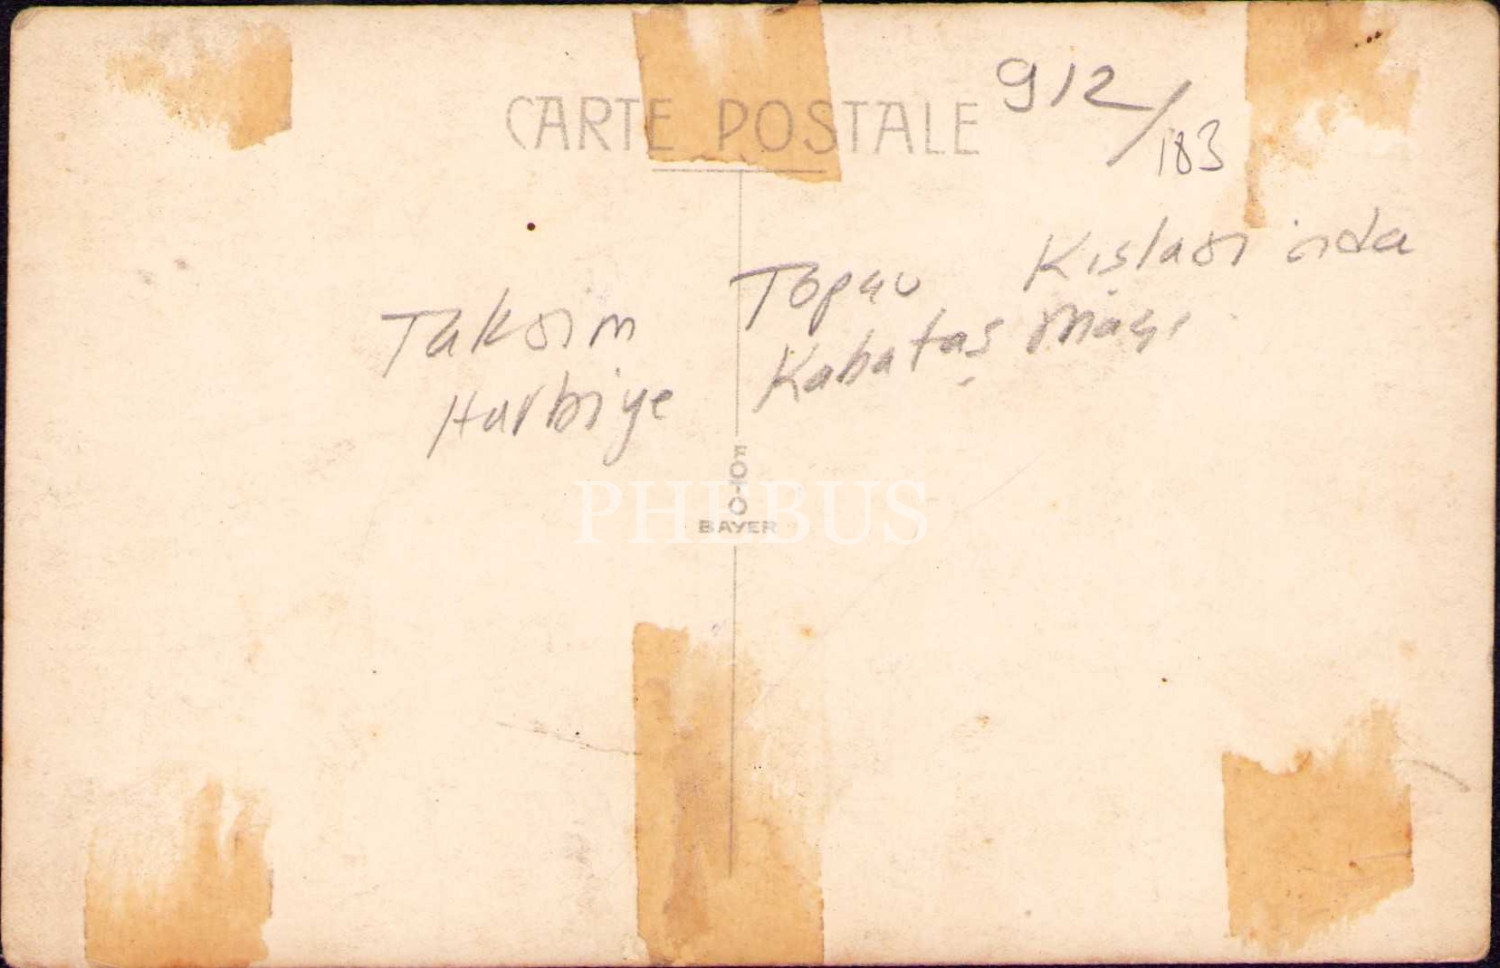 CARTE POSTALE
912/183
Taksim Topçu Kışlası
Harbiye Kabataş Maçı
FOTO
BAYER
PHEBUS